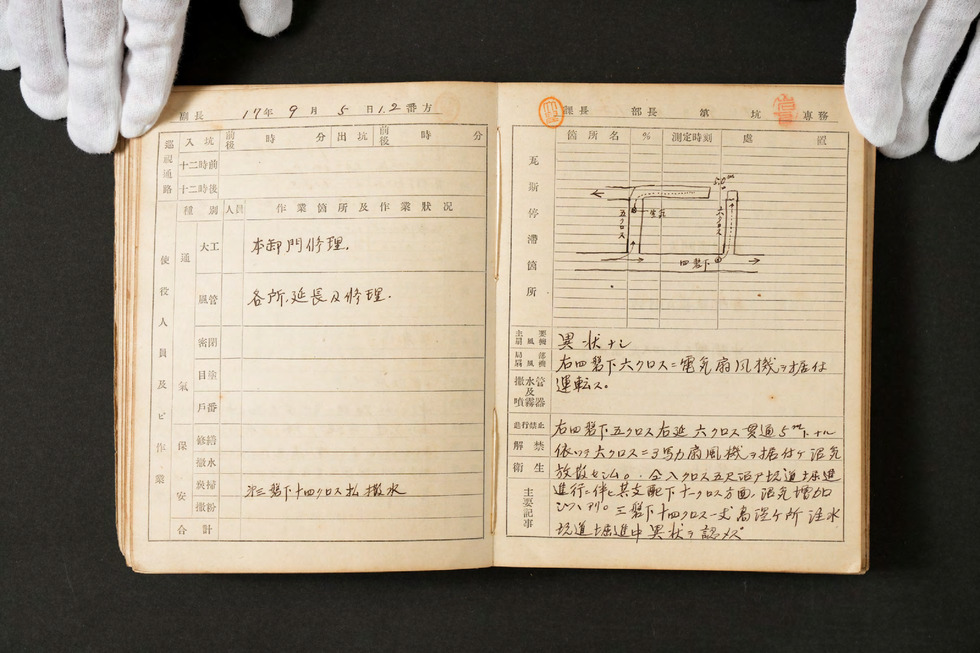 副長 17年 9月 5日 1.2番方
巡視通路 入坑 前後 時 分 出坑 前後 時 分
十二時前
十二時後
種別 人員 作業箇所及作業状況
使役人員及ビ作業
通気
大工 本卸門修理.
風管 各所.延長及修理.
密閉
目塗
戸番
保安
修繕
撒水
炭掃 次三盤下十四クロス払撒水
撒粉
合計
課長 部長 第 坑 専務
瓦斯停滞箇所
箇所名 % 測定時刻 処置
5.0m
五クロス
六クロス
四盤下
主要扇風機 異状ナシ
局部扇風機 右四盤下六クロスニ電気扇風機ヲ据付
撒水管及噴霧器 運転ス。
進行禁止 右四盤下五クロス右延六クロス貫通5mトナル
解禁 依ッテ六クロスニ3馬力扇風機ヲ据付ケ沼気
衛生 放散セシム。
主要記事 進行ニ伴ヒ其支配下十一クロス方面、沼気増加
シツヽアリ。三盤下十四クロス
坑道掘進中異状ヲ認メズ